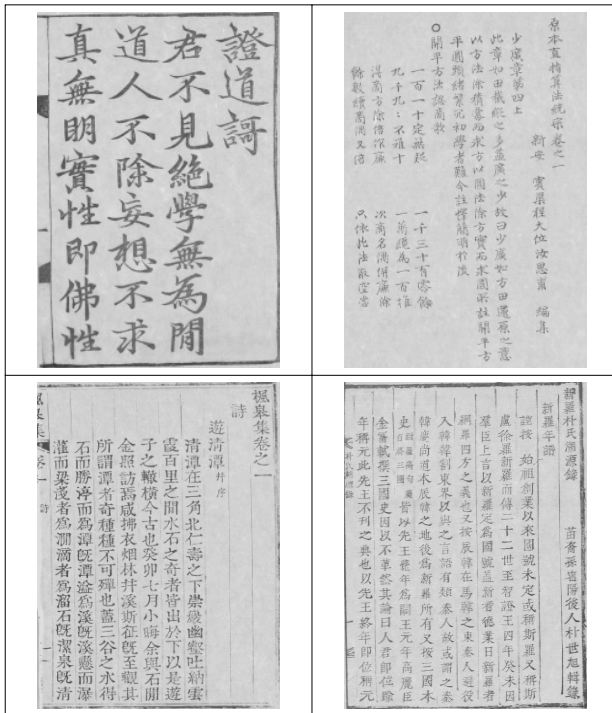 證道謌
君不見絶學無為閒
道人不除妄想不求
真無明實性即佛性
原本直指算法統宗卷之一
新安 賓渠程大位汝思甫 編集
少廣章第四上
此章如田截縱之多益廣之少故曰少廣如方田還原之意
以方法除積冪而求方以圓法除方實而求圓所註開平方
平圓頗緒繁冗初學者難今註釋簡明於後
○開平方法認商歌
一百一十定無疑 一千三十有零餘
九千九九不離十 一萬纔為一百推
得商方除倍作廉 次商名隅併廉除
餘數續商隅又倍 只依此法取空虛
楓皐集卷之一
詩
遊清潭 并序
清潭在三角北仁壽之下崇巒幽壑吐納雲
霞百里之間水石之奇者皆出於下以是遊
子之轍橫今古也癸卯七月小晦余與石閒
金照訪焉咸拂衣烟林井溪斯征旣至觀其
所謂潭者奇種種不可殫也蓋三谷之水得
石而勝渟而爲潭旣潭溢爲溪旣溪懸而瀑
而梁淺者爲澗滴者爲溜石旣潔泉旣清
楓皐集 卷一 詩 一
新羅朴氏溯源錄 苗裔孫密陽後人朴世旭輯錄
新羅年譜
謹按 始祖創業以來國號未定或稱斯羅又稱斯
盧徐羅新羅而傳二十二世至智證王四年癸未因
羣臣上言以新羅定爲國號蓋新者德業日新羅者
網羅四方之義也又按辰韓在馬韓之東秦人避役
入韓韓割東界以與之言語有類秦人故或謂之秦
韓慶尚道本辰韓之地後爲新羅所有又按三國本
史新羅高句麗百濟三國皆以先王薨年爲嗣王元年高麗臣
金富軾撰三國史因以不革然其論曰人君卽位踰
年稱元此先王不刊之典也以先王終年卽位稱元